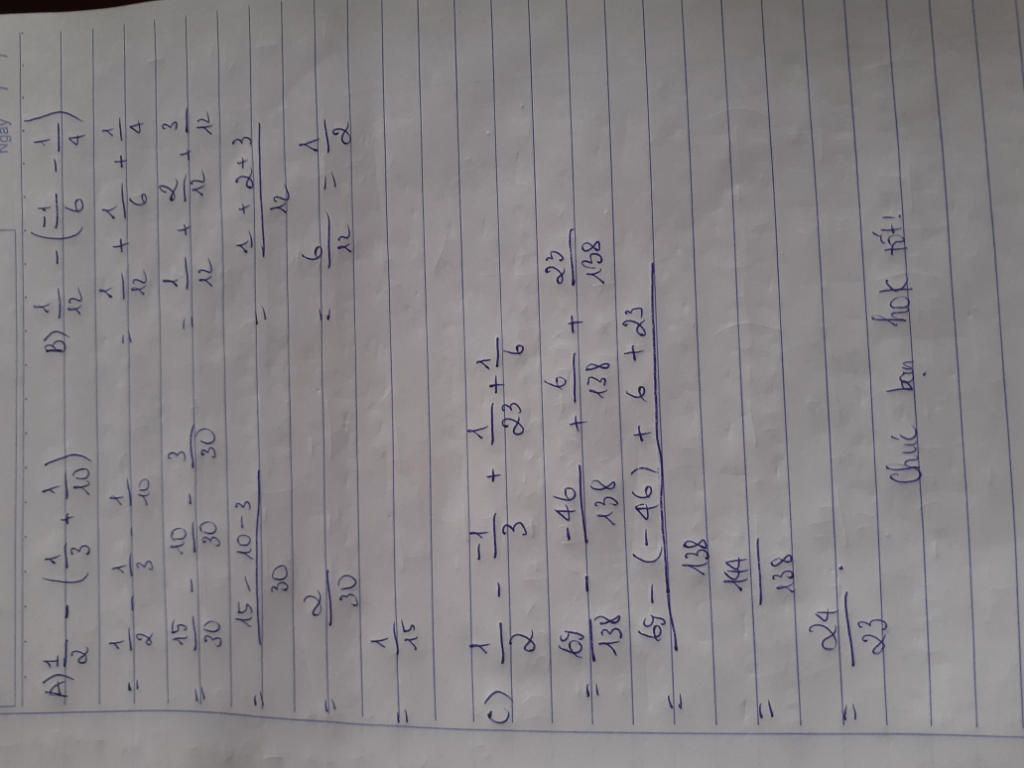 Ngày
A) 1/2 - (1/3 + 1/10)
= 1/2 - 1/3 - 1/10
= 15/30 - 10/30 - 3/30
= (15 - 10 - 3)/30
= 2/30
= 1/15
B) 1/12 - (-1/6 - 1/4)
= 1/12 + 1/6 + 1/4
= 1/12 + 2/12 + 3/12
= (1 + 2 + 3)/12
= 6/12 = 1/2
C) 1/2 - -1/3 + 1/23 + 1/6
= 69/138 - -46/138 + 6/138 + 23/138
= (69 - (-46) + 6 + 23)/138
= 144/138
= 24/23.
Chúc bạn hok tốt!